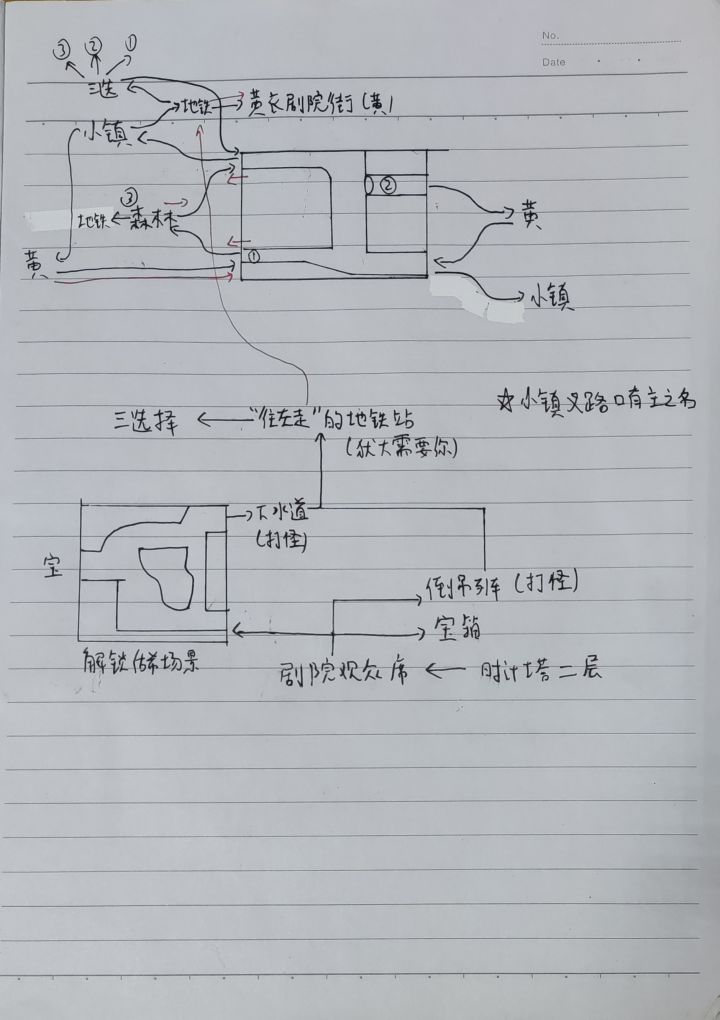 No.
Date
③ ② ①
三选
地铁 黄衣剧院街(黄)
小镇
②
③
地铁 森林
黄
①
黄
小镇
☆小镇叉路口有主之名
三选择 “往左走”的地铁站
(伏大需要你)
下水道
(打怪)
宝
倒吊库(打怪)
宝箱
解锁 场景
剧院观众席 时计塔二层